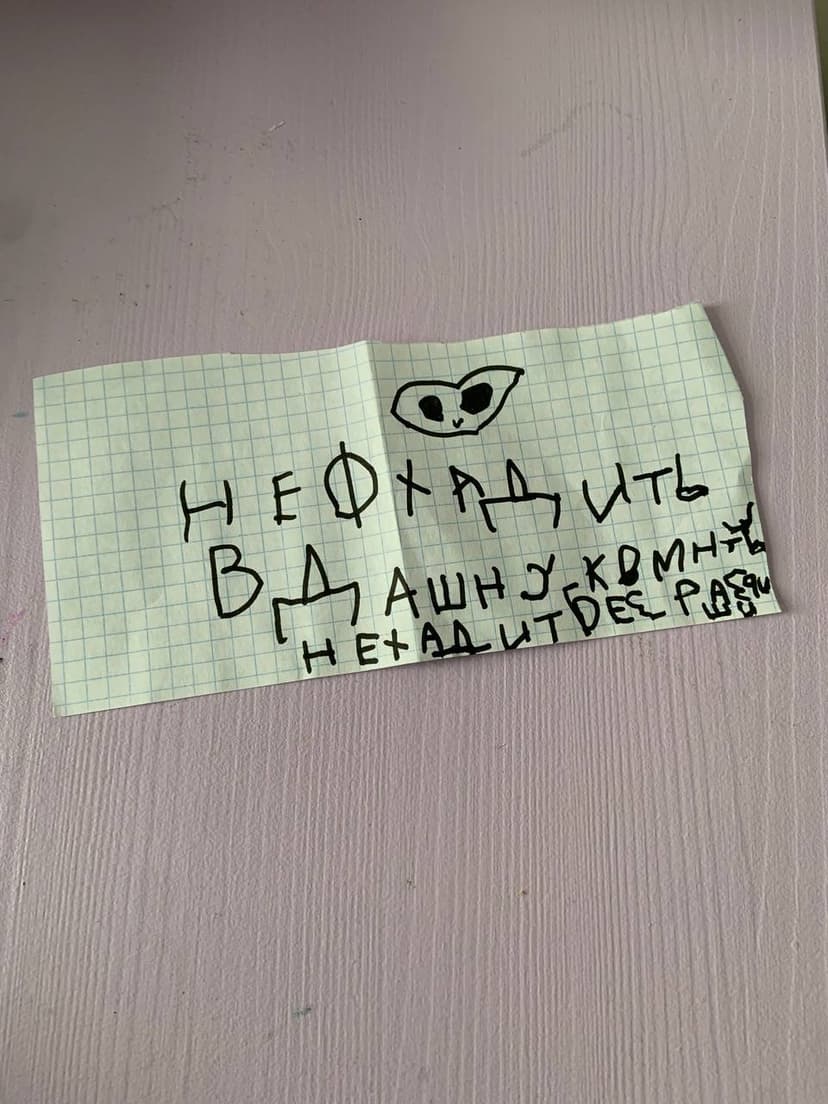 НЕФХАДИТЬ
ВДАШНУ КВМНТЬУ
НЕХАДИТ БЕЗ